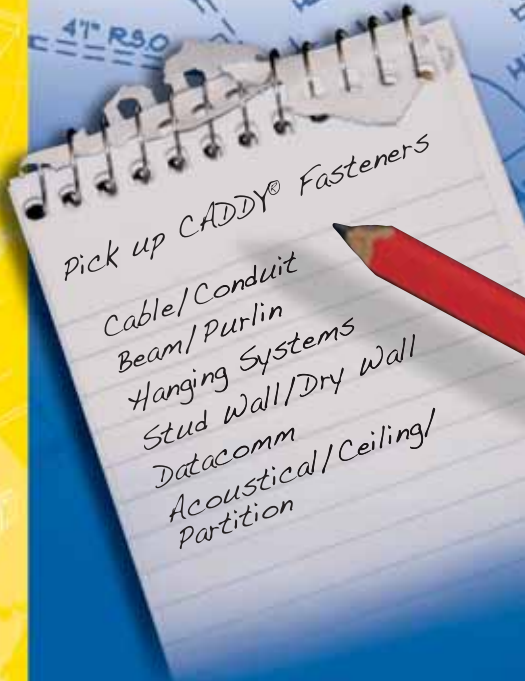 47" R.S.O.
Pick up CADDY® Fasteners
Cable/Conduit
Beam/Purlin
Hanging Systems
Stud Wall/Dry Wall
Datacomm
Acoustical/Ceiling/
Partition